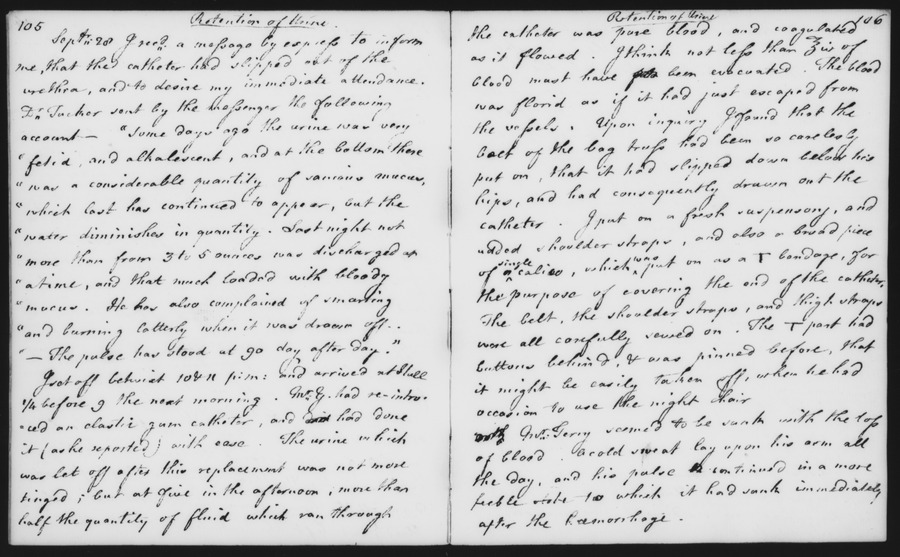 105
Retention of Urine.
Septr. 28 I recd. a message by express to inform
me, that the catheter had slipped out of the
urethra, and to desire my immediate attendance.
Dr. Tucker sent by the messenger the following
account — "Some days ago the urine was very
"fetid, and alkalescent, and at the bottom there
"was a considerable quantity of sanious mucus,
"which last has continued to appear, but the
"water diminishes in quantity. Last night not
"more than from 3 to 5 ounces was discharged at
"a time, and that much loaded with bloody
"mucus. He has also complained of smarting
"and burning latterly when it was drawn off..
"— The pulse has stood at 90 day after day."
I set off betwixt 10 & 11 p:m: and arrived at Hull
1/4 before 9 the next morning. Mr. G. had re-intro-
-ced an elastic gum catheter, and had done
it (as he reported) with ease. The urine which
was let off after this replacement was not more
tinged; but at five in the afternoon, more than
half the quantity of fluid which ran through
Retention of Urine
106
the catheter was pure blood, and coagulated
as it flowed. I think not less than ℥iv of
blood must have been evacuated. The blood
was florid as if it had just escaped from
the vessels. Upon inquiry I found that the
belt of the bag truss had been so carelessly
put on, that it had slipped down below his
hips, and had consequently drawn out the
catheter. I put on a fresh suspensory, and
added shoulder straps, and also a broad piece
of single calico, which was put on as a T bandage, for
the purpose of covering the end of the catheter.
The belt, the shoulder straps, and thigh straps
were all carefully sewed on. The T part had
buttons behind, & was pinned before, that
it might be easily taken off, when he had
occasion to use the night chair
Mr. Gerry seemed to be sunk with the loss
of blood. A cold sweat lay upon his arm all
the day, and his pulse continued in a more
feeble state to which it had sunk immediately
after the hæmorrhage.